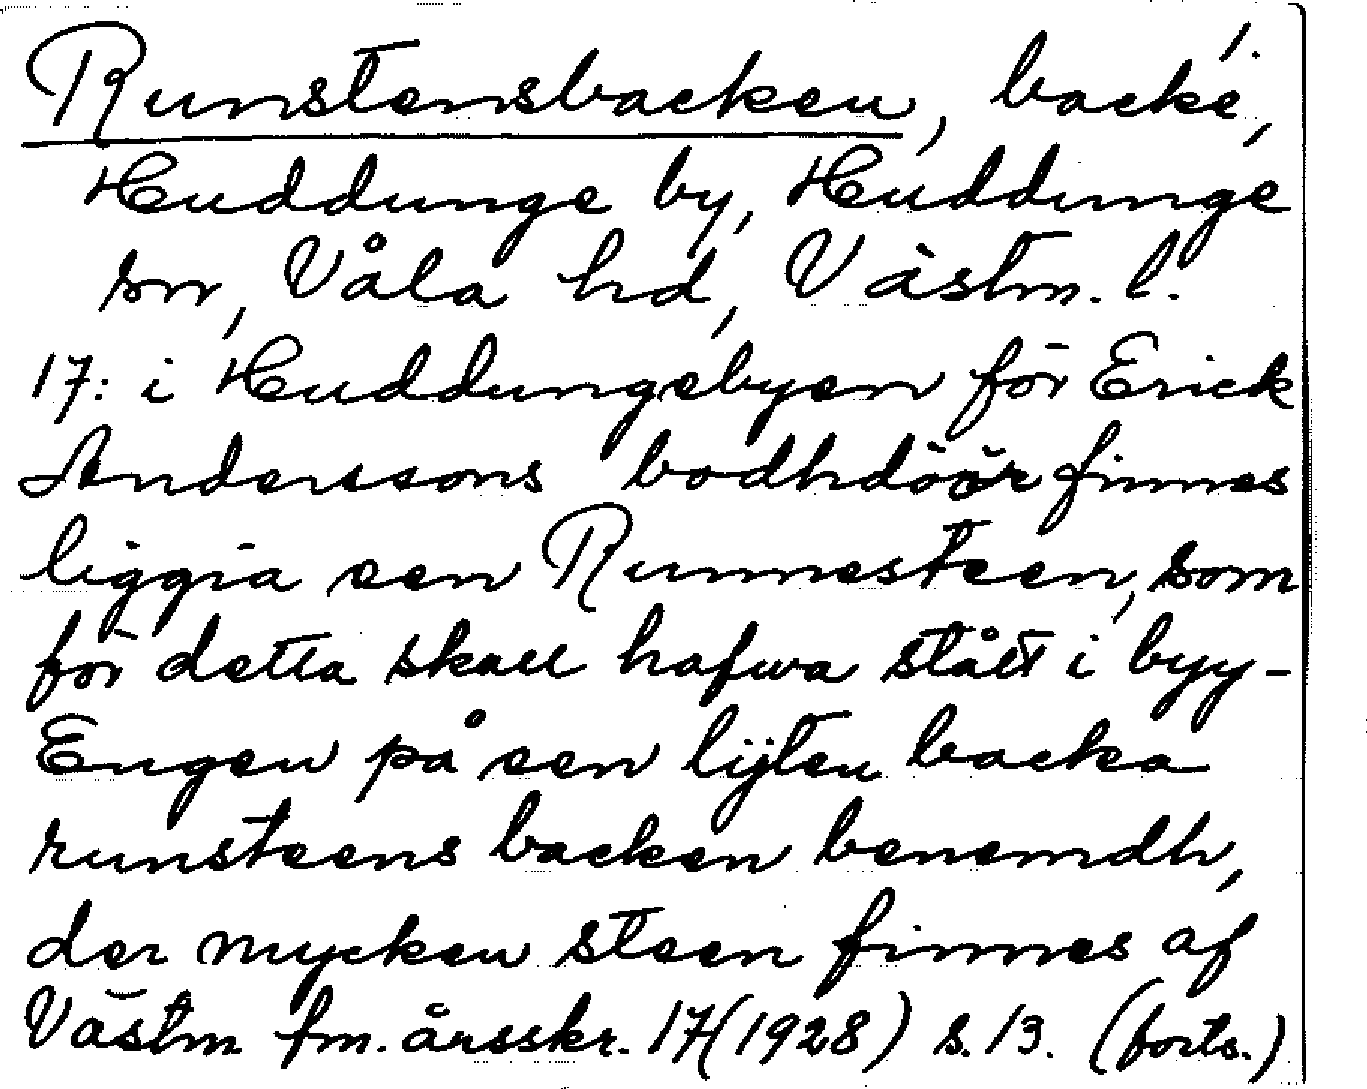 1.
Runstensbacken, backe,
Huddunge by, Huddunge
sn, Våla hd, Västm. l.
17: i Huddungebyen för Erick
Anderssons bodhdöör finnes
liggia een Runnesteen, som
för detta skall hafwa stått i byy-
Engen på een lijten backa
runsteens backen benemdh,
der mycken steen finnes af
Västm fm. årsskr. 17 (1928) s. 13. (forts.)